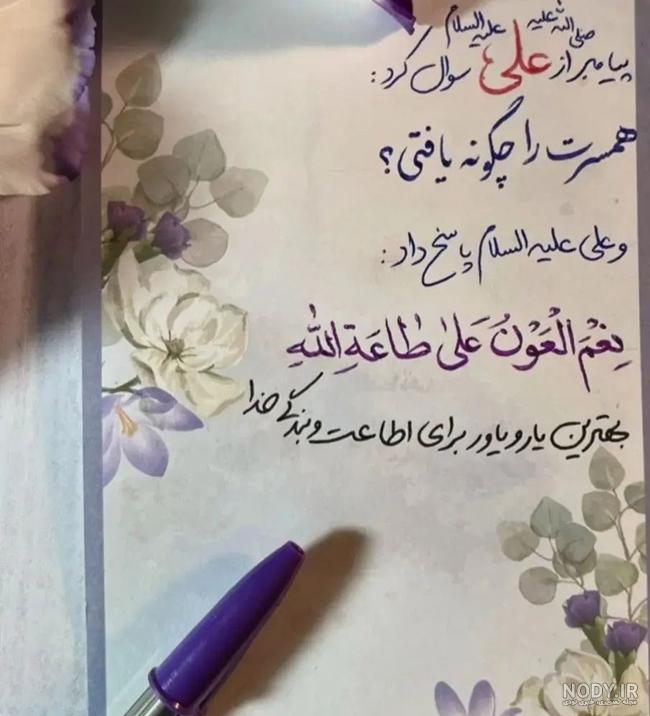 پیامبر صلی الله علیه از علی علیه السلام سوال کرد:
همسرت را چگونه یافتی؟
و علی علیه السلام پاسخ داد:
نِعْمَ الْعَوْنُ عَلیٰ طٰاعَةِ اللهِ
بهترین یار و یاور برای اطاعت و بندگی خدا
NODY.IR